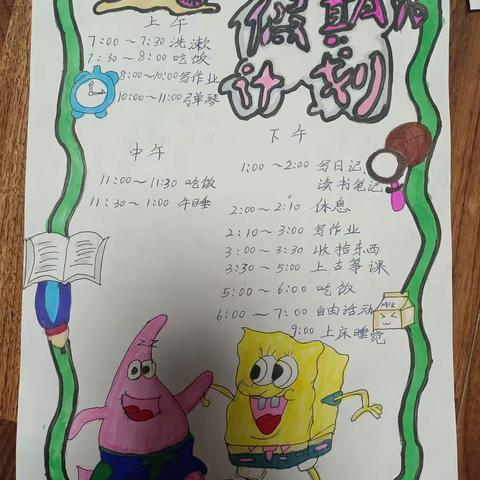 假期
计划
上午
7:00～7:30 洗漱
7:30～8:00 吃饭
8:00～10:00 写作业
10:00～11:00 弹琴
中午
11:00～11:30 吃饭
11:30～1:00 午睡
下午
1:00～2:00 写日记、
读书笔记
2:00～2:10 休息
2:10～3:00 写作业
3:00～3:30 收拾东西
3:30～5:00 上古筝课
5:00～6:00 吃饭
6:00～7:00 自由活动
9:00 上床睡觉
MILK